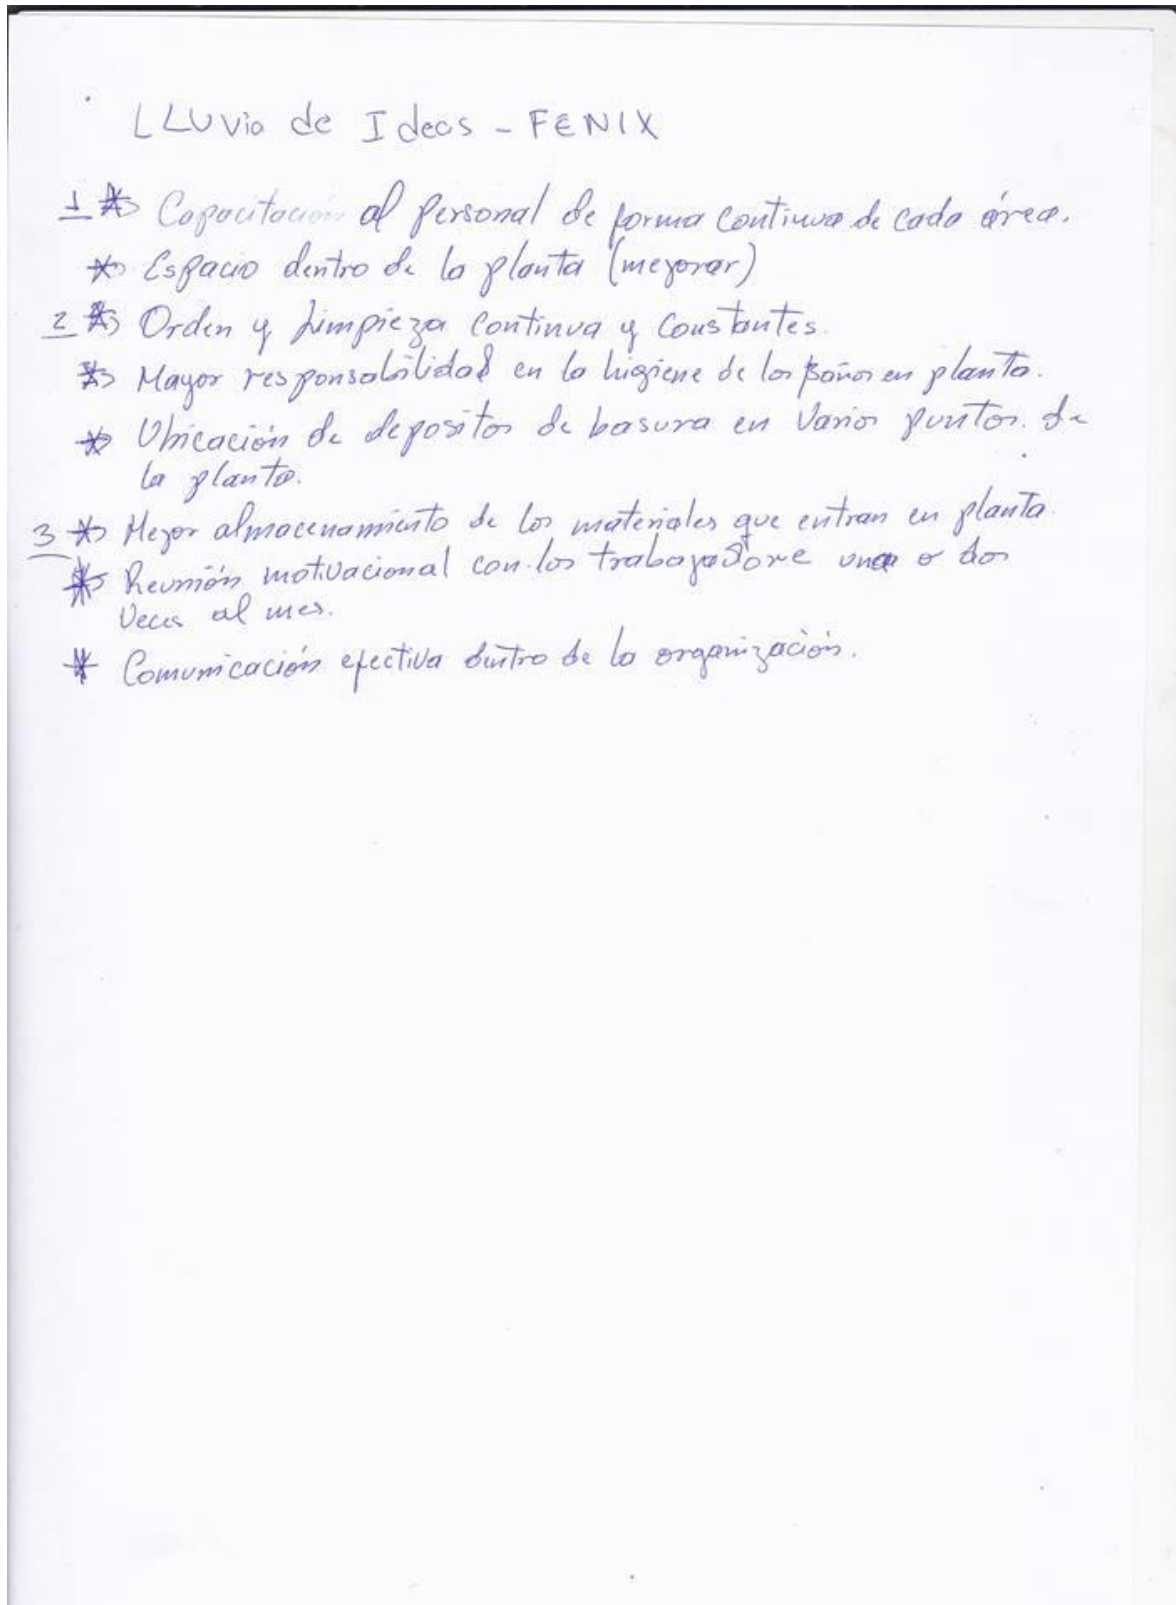 LLUVia de Ideas - FENIX
1 * Capacitación al Personal de forma continua de cada área.
* Espacio dentro de la planta (mejorar)
2 * Orden y Limpieza continua y Constantes.
* Mayor responsabilidad en la higiene de los Baños en planta.
* Ubicación de depositos de basura en Varios puntos. de
la planta.
3 * Mejor almacenamiento de los materiales que entran en planta.
* Reunión motivacional con los trabajadore una o dos
Veces al mes.
* Comunicación efectiva dentro de la organización.